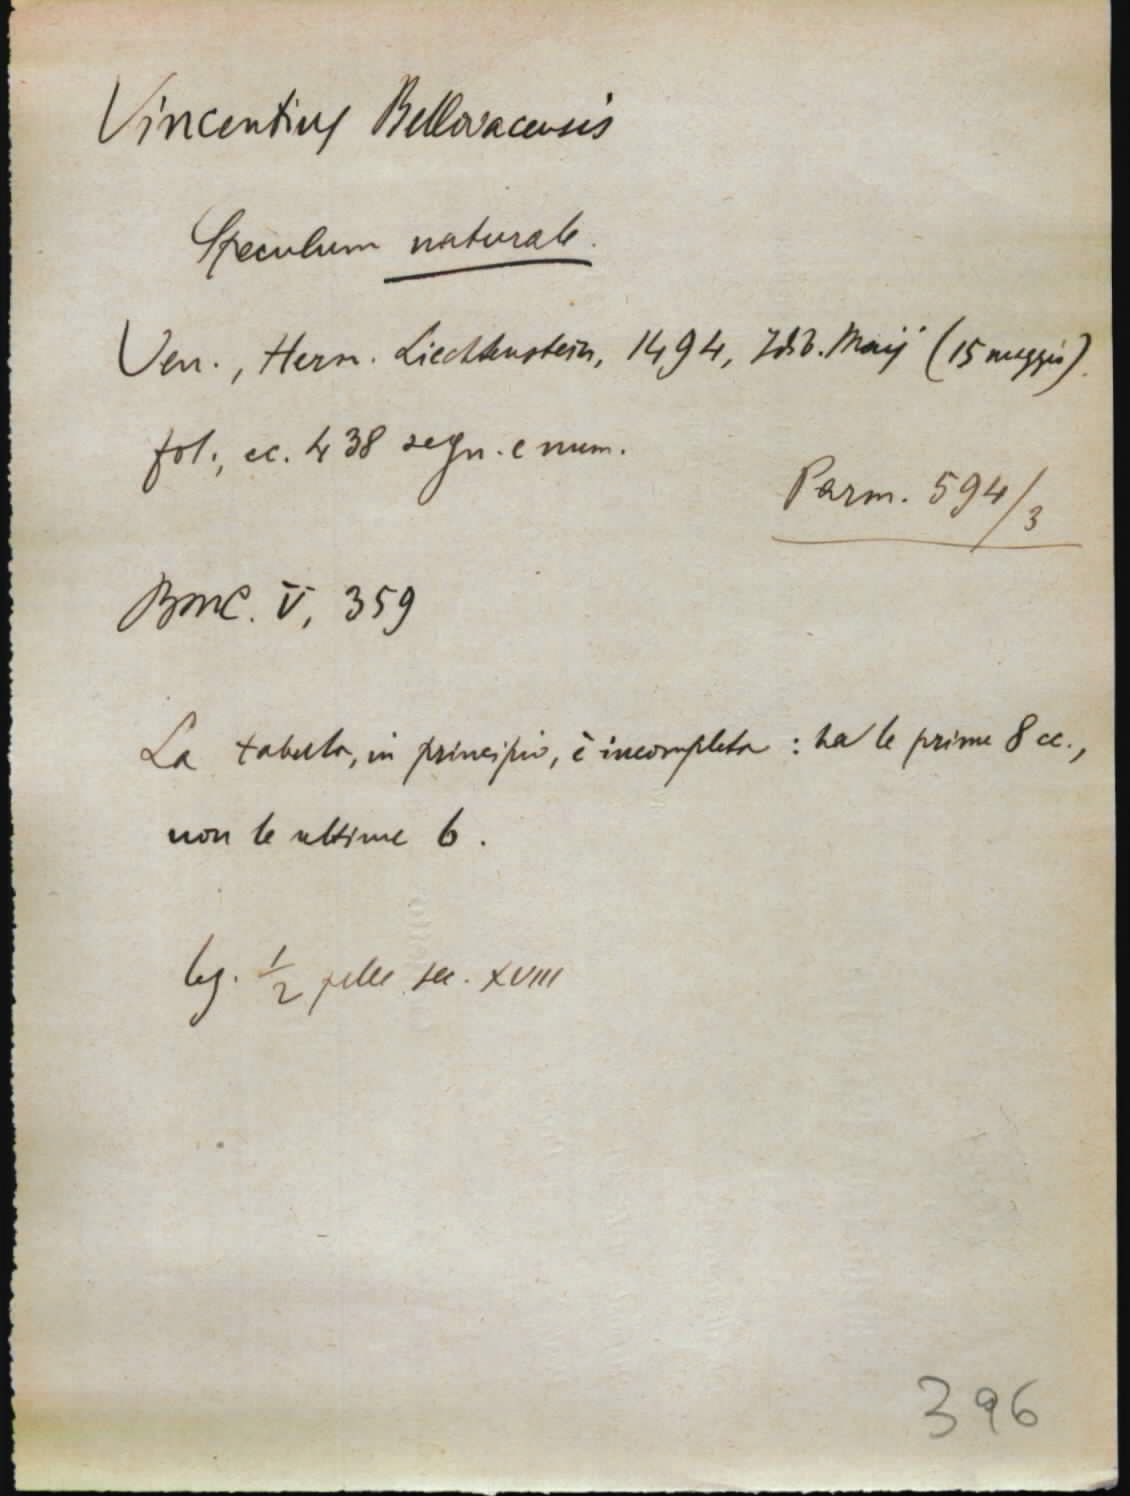 Vincentius Bellovacensis
Speculum naturale.
Ven., Herm. Liechtenstein, 1494, Idib. Maij (15 maggio).
fol., cc. 438 segn. e num.
Parm. 594/3
BMC. V, 359
La tabula, in principio, è incompleta : ha le prime 8 cc.,
non le ultime 6.
leg. 1/2 pelle sec. XVIII
396